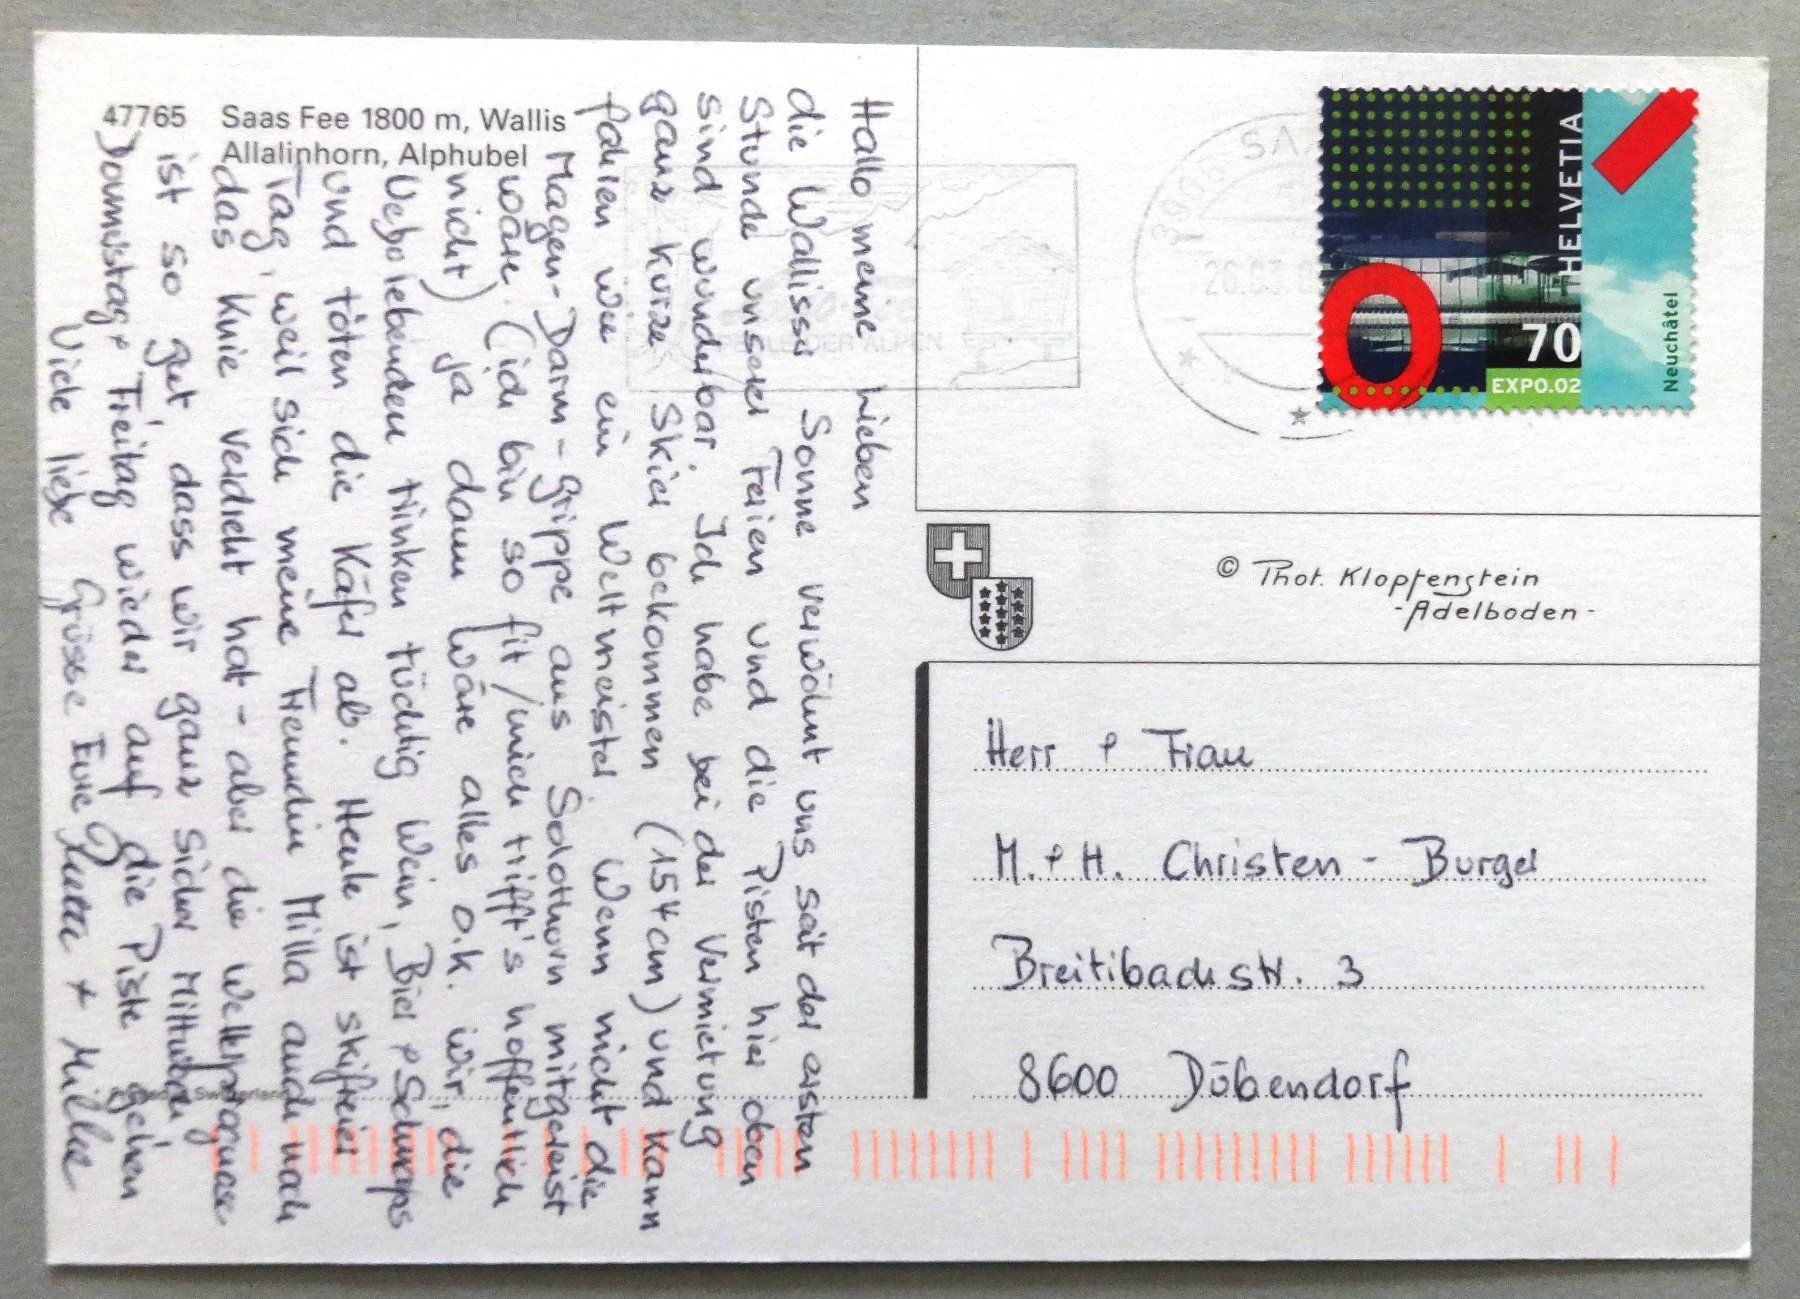 47765 Saas Fee 1800 m, Wallis
Allalinhorn, Alphubel
Hallo meine Lieben
die Walliser Sonne verwöhnt uns seit der ersten
Stunde unserer Ferien und die Pisten hier oben
sind wunderbar. Ich habe bei der Vermietung
ganz kurze Skier bekommen (154 cm) und kann
fahren wie ein Weltmeister. Wenn nicht die
Magen-Darm-Grippe aus Solothurn mitgereist
wäre (ich bin so fit/mich trifft's hoffentlich
nicht) ja dann wäre alles o.k. Wir, die
Ueberlebenden trinken tüchtig Wein, Bier + Schnaps
und töten die Käfer ab. Heute ist skifreier
Tag, weil sich meine Freundin Milla auch noch
das Knie verdreht hat - aber die Wetterprognose
ist so gut, dass wir ganz sicher Mittwoch
Donnerstag + Freitag wieder auf die Piste gehen
Viele liebe Grüsse Eure + Milla
HELVETIA
70
EXPO.02
Neuchâtel
PERLE DER ALPEN
© Phot. Klopfenstein
-Adelboden-
Herr + Frau
M. + H. Christen - Burger
Breitibachstr. 3
8600 Dübendorf